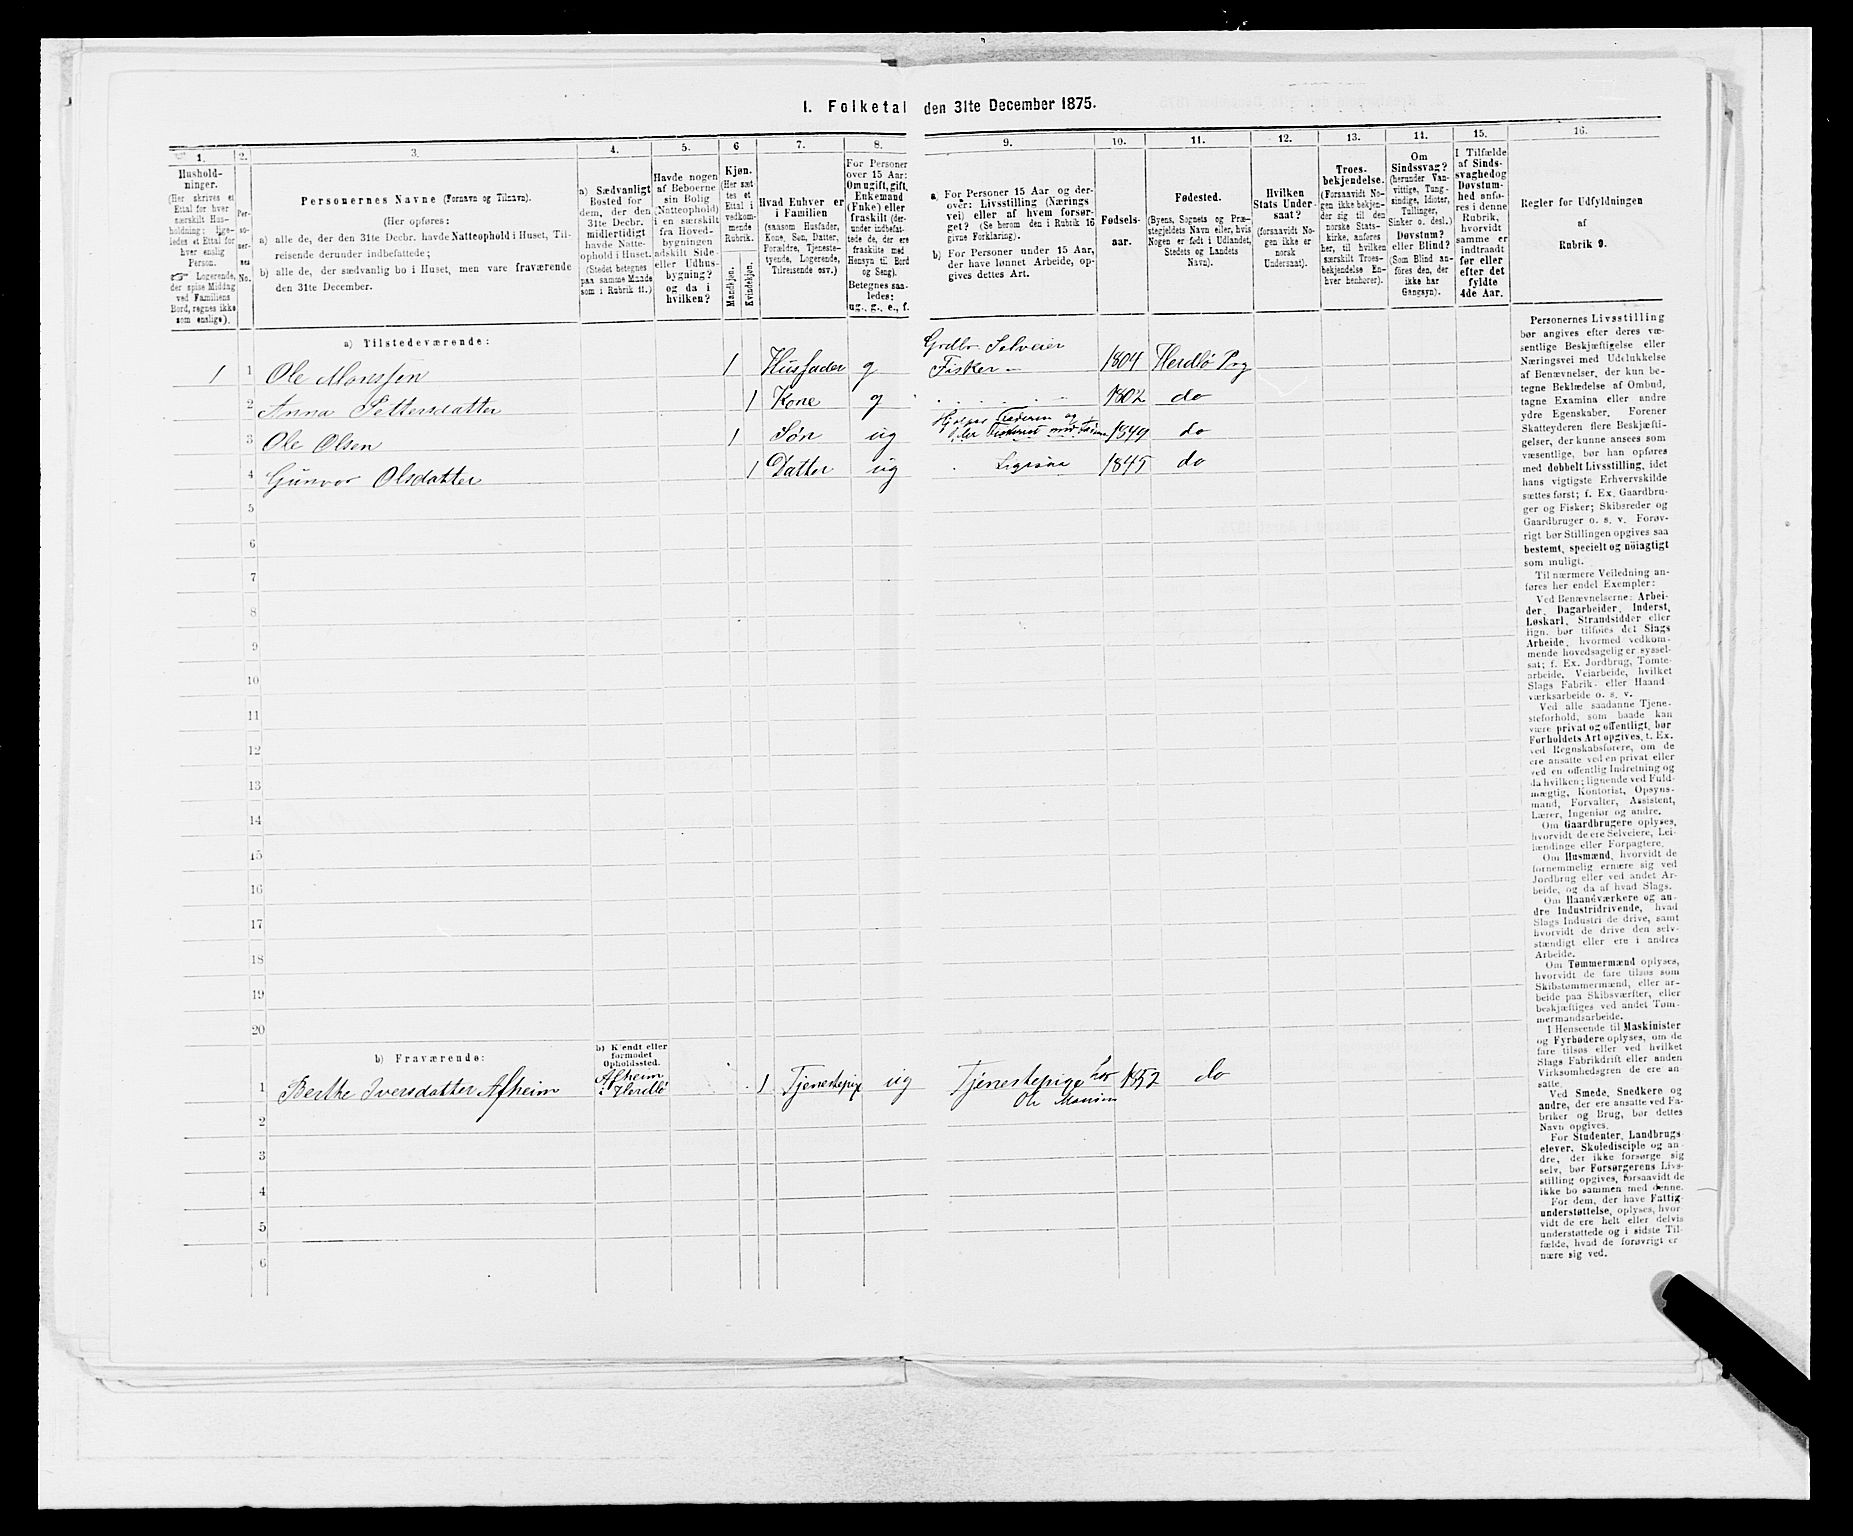 1. Folketal den 31te December 1875.
1. 2. 3. 4. 5. 6 7. 8. 9. 10. 11. 12. 13. 14. 15. 16.
Hushold-
ninger.
(Her skrives et
Ettal for hver
særskilt Hus-
holdning; lige-
ledes et Ettal for
hver enslig
Person.
☞ Logerende,
der spise Middag
ved Familiens
Bord, regnes ikke
som enslige).
Per-
so-
ner-
nes
No.
Personernes Navne (Fornavn og Tilnavn).
(Her opføres:
a) alle de, der den 31te Decbr. havde Natteophold i Huset, Til-
reisende derunder indbefattede;
b) alle de, der sædvanlig bo i Huset, men vare fraværende
den 31te December.
a) Sædvanligt
Bosted for
dem, der den
31te Decbr.
midlertidigt
havde Natte-
ophold i Huset.
(Stedet betegnes
paa samme Maade
som i Rubrik 11.)
Havde nogen
af Beboerne
sin Bolig
(Natteophold)
i en særskilt
fra Hoved-
bygningen
adskilt Side-
eller Udhus-
bygning?
og da i
hvilken?
Kjøn.
(Her sæt-
tes et
Ettal i
vedkom-
mende
Rubrik.
Mandkjøn.
Kvindekjøn.
Hvad Enhver er
i Familien
(saasom Husfader,
Kone, Søn, Datter,
Forældre, Tjeneste-
tyende, Logerende,
Tilreisende osv.)
For Personer
over 15 Aar:
Om ugift, gift,
Enkemand
(Enke) eller
fraskilt (der-
under indbefat-
tede de, der ere
fraskilte med
Hensyn til Bord
og Seng).
Betegnes saa-
ledes:
ug., g., e., f.
a. For Personer 15 Aar og der-
over: Livsstilling (Nærings
vei) eller af hvem forsør-
get? (Se herom den i Rubrik 16
givne Forklaring).
b) For Personer under 15 Aar,
der have lønnet Arbeide, op-
gives dettes Art.
Fødsels-
aar.
Fødested.
(Byens, Sognets og Præ-
stegjeldets Navn eller, hvis
Nogen er født i Udlandet,
Stedets og Landets
Navn).
Hvilken
Stats Under-
saat?
(forsaavidt No-
gen ikke er
norsk
Undersaat).
Troes-
bekjendelse.
(Forsaavidt No-
gen ikke bekjen-
der sig til den
norske Stats-
kirke, anføres
her, til hvilken
særskilt Troes-
bekjendelse En-
hver henhører).
Om
Sindssvag?
(herunder Van-
vittige, Tung-
sindige, Idioter,
Tullinger,
Sinker o. desl.)
Døvstum?
eller Blind?
(Som Blind an-
føres den, der
ikke har
Gangsyn).
I Tilfælde
af Sinds-
svaghed og
Døvstum-
hed anfø-
res i denne
Rubrik,
hvorvidt
samme er
indtraadt
før eller
efter det
fyldte
4de Aar.
Regler for Udfyldningen
af
Rubrik 9.
a) Tilstedeværende:
1 1 Ole Monssen 1 Husfader g Grdbr. Selveier
Fisker 1804 Herdlø Prg
2 Anna Pettersdatter 1 Kone g 1802 do
3 Ole Olsen 1 Søn ug Hjælper Faderen og
Fiskeriet med 1849 do
4 Gunvor Olsdatter 1 Datter ug Ligesaa 1845 do
5
6
7
8
9
10
11
12
13
14
15
16
17
18
19
20
b) Fraværende:
b) Kjendt eller
formodet
Opholdssted.
1 Berthe Iversdatter Alheim Alheim
i Herdlø 1 Tjenestepige ug Tjenestepige hos
Ole Monsen 1852 do
2
3
4
5
6
Personernes Livsstilling
bør angives efter deres væ-
sentlige Beskjæftigelse eller
Næringsvei med Udelukkelse
af Benævnelser, der kun be-
tegne Beklædelse af Ombud,
tagne Examina eller andre
ydre Egenskaber. Forener
Skatteyderen flere Beskjæfti-
gelser, der kunne ansees som
væsentlige, bør han opføres
med dobbelt Livsstilling, idet
hans vigtigste Erhvervskilde
sættes først; f. Ex. Gaardbru-
ger og Fisker; Skibsreder og
Gaardbruger o. s. v. Forøv-
rigt bør Stillingen opgives saa
bestemt, specielt og nöiagtigt
som muligt.
Til nærmere Veiledning an-
føres her endel Exempler:
Ved Benævnelserne: Arbei-
der, Dagarbeider, Inderst,
Løskarl, Strandsidder eller
lign. bør tilføies det Slags
Arbeide, hvormed vedkom-
mende hovedsagelig er syssel-
sat; f. Ex. Jordbrug, Tomte-
arbeide, Veiarbeide, hvilket
Slags Fabrik- eller Haand-
værksarbeide o. s. v.
Ved alle saadanne Tjene-
steforhold, som baade kan
være privat og offentligt, bør
Forholdets Art opgives, t. Ex.
ved Regnskabsførere, om de
ere ansatte ved en privat eller
ved en offentlig Indretning og
da hvilken; lignende ved Fuld-
mægtig, Kontorist, Opsyns-
mand, Forvalter, Assistent,
Lærer, Ingeniør og andre.
Om Gaardbrugere oplyses,
hvorvidt de ere Selveiere, Lei-
lændinge eller Forpagtere.
Om Husmænd, hvorvidt de
fornemmelig ernære sig ved
Jordbrug eller ved andet Ar-
beide, og da af hvad Slags.
Om Haandværkere og an-
dre Industridrivende, hvad
Slags Industri de drive, samt
hvorvidt de drive den selv-
stændigt eller ere i andres
Arbeide.
Om Tømmermænd oplyses,
hvorvidt de fare tilsøs som
Skibstømmermænd, eller ar-
beide paa Skibsværfter, eller
beskjæftiges ved andet Tøm-
mermandsarbeide.
I Henseende til Maskinister
og Fyrbødere oplyses, om de
fare tilsøs eller ved hvilket
Slags Fabrikdrift eller anden
Virksomhedsgren de ere an-
satte.
Ved Smede, Snedkere og
andre, der ere ansatte ved Fa-
briker og Brug, bør dettes
Navn opgives.
For Studenter, Landbrugs-
elever, Skoledisciple og an-
dre, der ikke forsørge sig
selv, bør Forsørgerens Livs-
stilling opgives, forsaavidt de
ikke bo sammen med denne.
For dem, der have Fattig-
understøttelse, oplyses, hvor-
vidt de ere helt eller delvis
understøttede og i sidste Til-
fælde, hvad de forøvrigt er
nære sig ved.